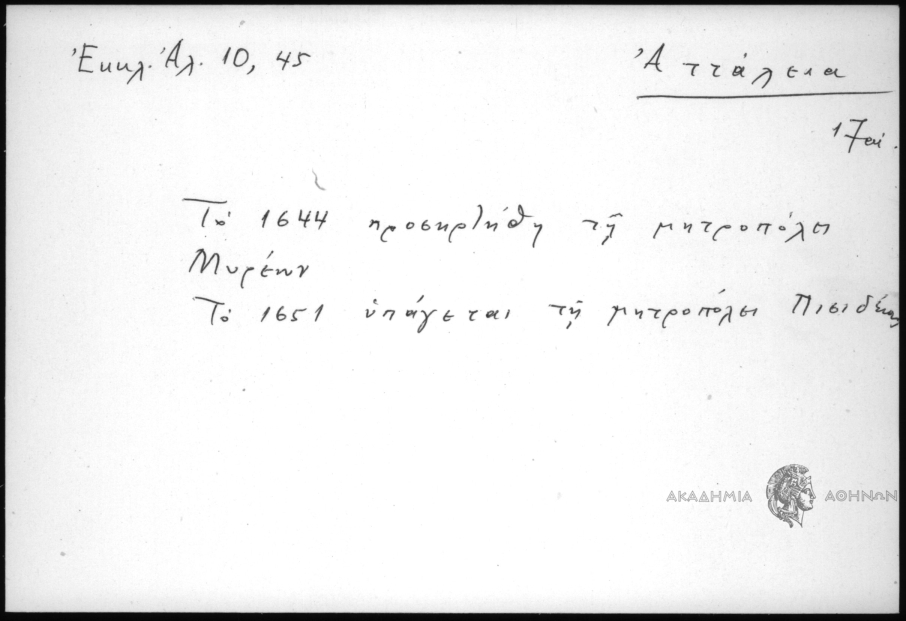 Ἐκκλ. Ἀλ. 10, 45
Ἀττάλεια
17 αἰ.
Τὸ 1644 προσηρτήθη τῇ μητροπόλει
Μυρέων
Τὸ 1651 ὑπάγεται τῇ μητροπόλει Πισιδίας
ΑΚΑΔΗΜΙΑ ΑΘΗΝΩΝ